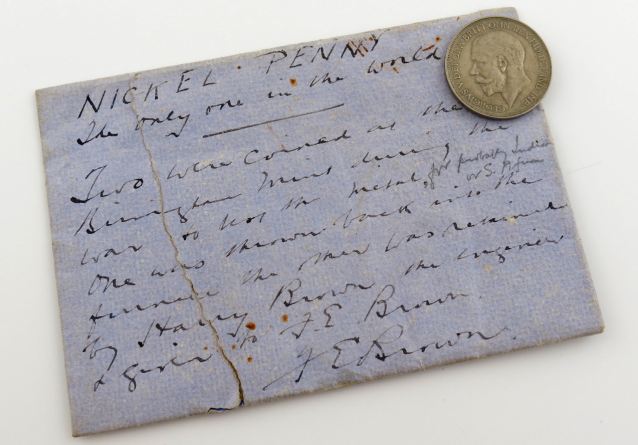 NICKEL. PENNY
The only one in the world
Two were coined at the
Birmingham Mint during the
war to test the metal. for probably India
or S. Africa
One was thrown back into the
furnace the other was retained
by Harry Brown the engineer
& given to F E Brown.
F E Brown.